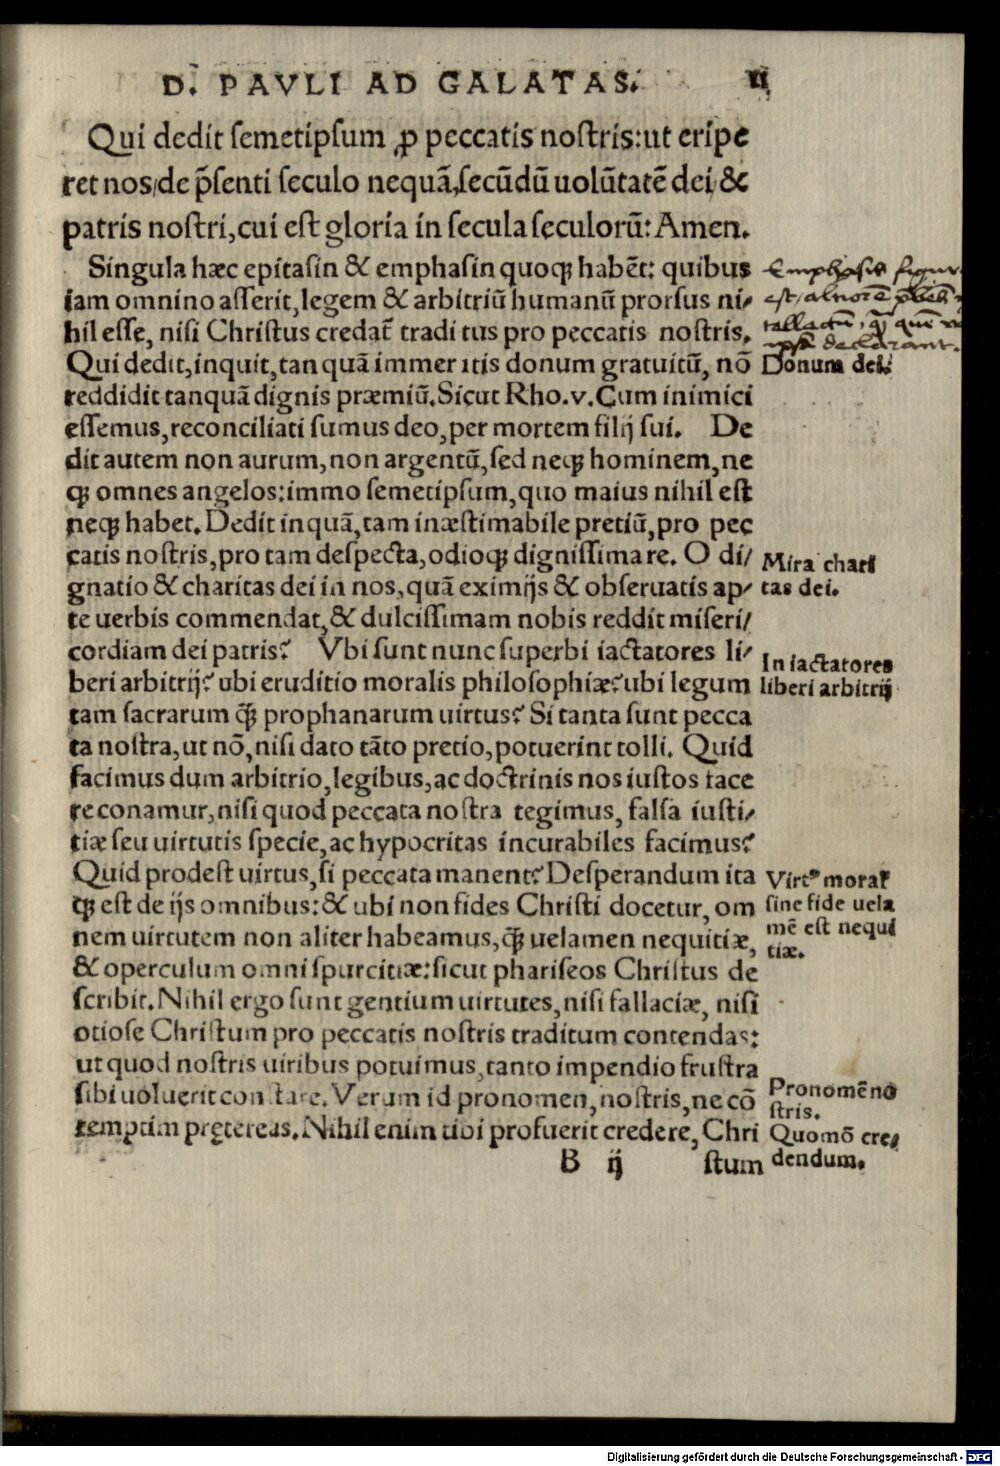 D. PAVLI AD GALATAS. VI
Qui dedit semetipsum ꝓ peccatis nostris: ut eripe
ret nos/de p̄senti seculo nequā, secūdū uolūtatē dei/&
patris nostri, cui est gloria in secula seculorū: Amen.
Singula hæc epitasin & emphasin quoqꝫ habēt: quibus
iam omnino asserit, legem & arbitriū humanū prorsus ni/
hil esse, nisi Christus credat̄ traditus pro peccatis nostris.
Qui dedit, inquit, tanquā immeritis donum gratuitū, nō
reddidit tanquā dignis præmiū. Sicut Rho.v. Cum inimici
essemus, reconciliati sumus deo, per mortem filij sui. De
dit autem non aurum, non argentū, sed neqꝫ hominem, ne
qꝫ omnes angelos: immo semetipsum, quo maius nihil est
neqꝫ habet. Dedit inquā, tam inæstimabile pretiū, pro pec
catis nostris, pro tam despecta, odioqꝫ dignissima re. O di/
gnatio & charitas dei in nos, quā eximijs & obseruatis ap/
te uerbis commendat, & dulcissimam nobis reddit miseri/
cordiam dei patris? Vbi sunt nunc superbi iactatores li/
beri arbitrij? ubi eruditio moralis philosophiæ? ubi legum
tam sacrarum q̄ꝫ prophanarum uirtus? Si tanta sunt pecca
ta nostra, ut nō, nisi dato tāto pretio, potuerint tolli. Quid
facimus dum arbitrio, legibus, ac doctrinis nos iustos face
re conamur, nisi quod peccata nostra tegimus, falsa iusti/
tiæ seu uirtutis specie, ac hypocritas incurabiles facimus?
Quid prodest uirtus, si peccata manent? Desperandum ita
qꝫ est de ijs omnibus: & ubi non fides Christi docetur, om
nem uirtutem non aliter habeamus, q̄ꝫ uelamen nequitiæ,
& operculum omni spurcitiæ: sicut phariseos Christus de
scribit. Nihil ergo sunt gentium uirtutes, nisi fallaciæ, nisi
otiose Christum pro peccatis nostris traditum contendas:
ut quod nostris uiribus potuimus, tanto impendio frustra
sibi uoluerit constare. Verum id pronomen, nostris, ne cō
temptim prętereas. Nihil enim tibi profuerit credere, Chri
B ij stum
Emphasis figur
est
declarant.
Donum dei.
Mira chari
tas dei.
In iactatores
liberi arbitrij
Virtꝰ moral
sine fide uela
mē est nequi
tiæ.
Pronomē no
stris.
Quomō cre/
dendum.
Digitalisierung gefördert durch die Deutsche Forschungsgemeinschaft - DFG